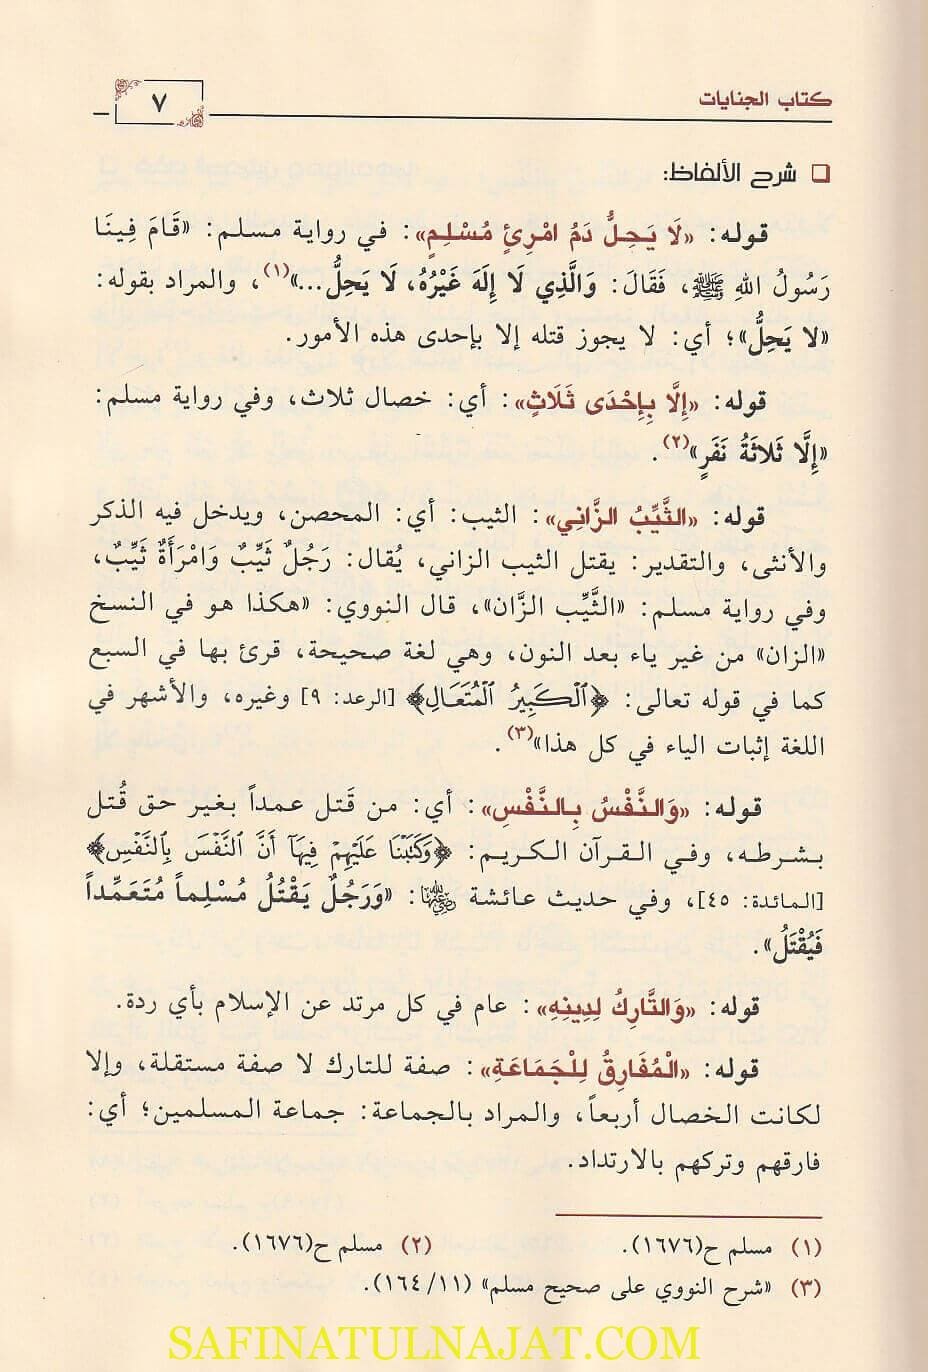 كتاب الجنايات
٧
شرح الألفاظ:
قوله: «لَا يَحِلُّ دَمُ امْرِئٍ مُسْلِمٍ»: في رواية مسلم: «قَامَ فِينَا
رَسُولُ اللهِ ﷺ، فَقَالَ: وَالَّذِي لَا إِلَهَ غَيْرُهُ، لَا يَحِلُّ...»(١)، والمراد بقوله:
«لا يَحِلُّ»؛ أي: لا يجوز قتله إلا بإحدى هذه الأمور.
قوله: «إِلَّا بِإِحْدَى ثَلَاثٍ»: أي: خصال ثلاث، وفي رواية مسلم:
«إِلَّا ثَلَاثَةُ نَفَرٍ»(٢).
قوله: «الثَّيِّبُ الزَّانِي»: الثيب: أي: المحصن، ويدخل فيه الذكر
والأنثى، والتقدير: يقتل الثيب الزاني، يُقال: رَجُلٌ ثَيِّبٌ وَامْرَأَةٌ ثَيِّبٌ،
وفي رواية مسلم: «الثَّيِّب الزَّان»، قال النووي: «هكذا هو في النسخ
«الزان» من غير ياء بعد النون، وهي لغة صحيحة، قرئ بها في السبع
كما في قوله تعالى: ﴿ٱلْكَبِيرُ ٱلْمُتَعَالِ﴾ [الرعد: ٩] وغيره، والأشهر في
اللغة إثبات الياء في كل هذا»(٣).
قوله: «وَالنَّفْسُ بِالنَّفْسِ»: أي: من قَتل عمداً بغير حق قُتل
بشرطه، وفي القرآن الكريم: ﴿وَكَتَبْنَا عَلَيْهِمْ فِيهَآ أَنَّ ٱلنَّفْسَ بِٱلنَّفْسِ﴾
[المائدة: ٤٥]، وفي حديث عائشة رضي الله عنها: «وَرَجُلٌ يَقْتُلُ مُسْلِماً مُتَعَمِّداً
فَيُقْتَلُ».
قوله: «وَالتَّارِكُ لِدِينِهِ»: عام في كل مرتد عن الإسلام بأي ردة.
قوله: «الْمُفَارِقُ لِلْجَمَاعَةِ»: صفة للتارك لا صفة مستقلة، وإلا
لكانت الخصال أربعاً، والمراد بالجماعة: جماعة المسلمين؛ أي:
فارقهم وتركهم بالارتداد.
(١) مسلم ح(١٦٧٦). (٢) مسلم ح(١٦٧٦).
(٣) «شرح النووي على صحيح مسلم» (١١/ ١٦٤).
SAFINATULNAJAT.COM